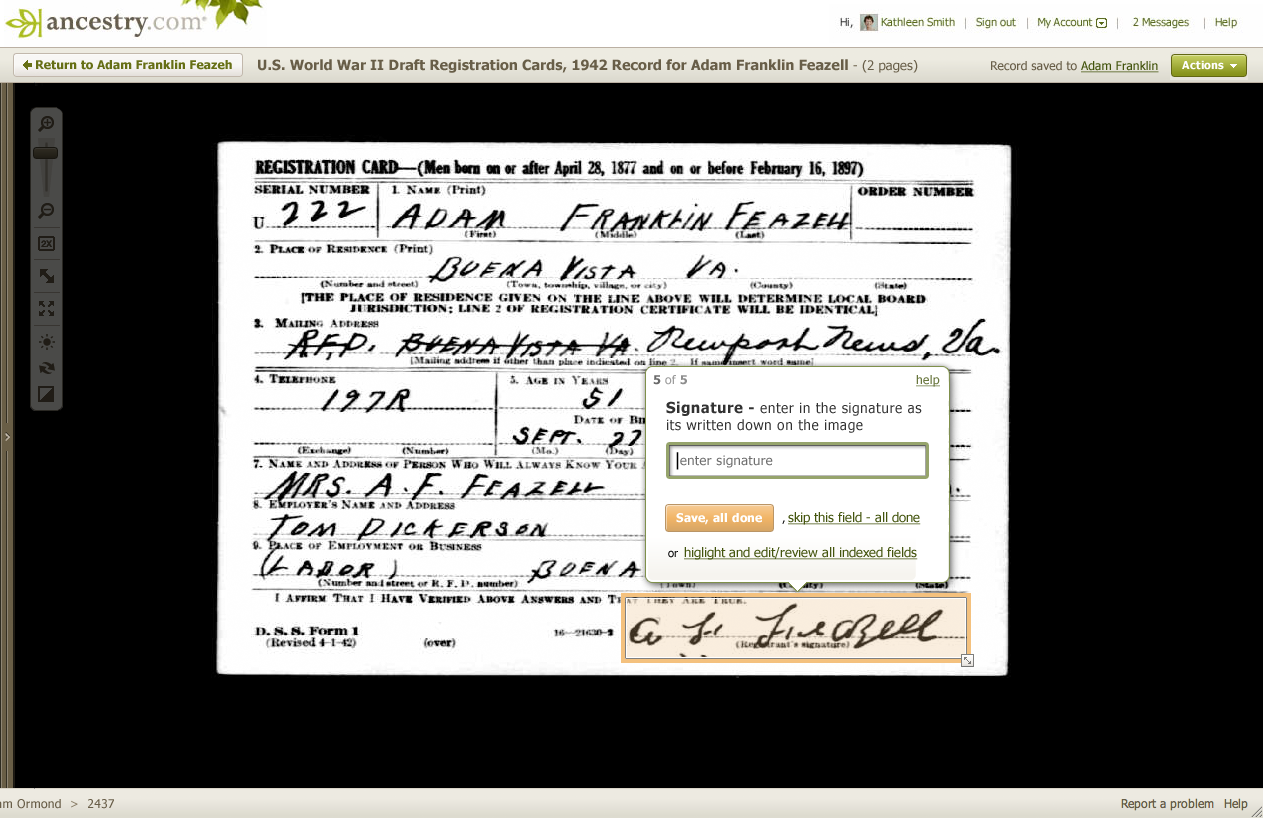 ancestry.com
Hi, Kathleen Smith | Sign out | My Account | 2 Messages | Help
Return to Adam Franklin Feazeh
U.S. World War II Draft Registration Cards, 1942 Record for Adam Franklin Feazell - (2 pages)
Record saved to Adam Franklin
Actions
REGISTRATION CARD—(Men born on or after April 28, 1877 and on or before February 16, 1897)
SERIAL NUMBER
1. NAME (Print)
ORDER NUMBER
U 222
ADAM FRANKLIN FEAZELL
(First) (Middle) (Last)
2. PLACE OF RESIDENCE (Print)
BUENA VISTA VA.
(Number and street) (Town, township, village, or city) (County) (State)
[THE PLACE OF RESIDENCE GIVEN ON THE LINE ABOVE WILL DETERMINE LOCAL BOARD
JURISDICTION; LINE 2 OF REGISTRATION CERTIFICATE WILL BE IDENTICAL]
3. MAILING ADDRESS
R.F.D. BUENA VISTA VA. Newport News, Va.
[Mailing address if other than place indicated on line 2. If same insert word same]
4. TELEPHONE
5. AGE IN YEARS
197R
51
DATE OF BI
SEPT. 27
(Exchange) (Number)
(Mo.) (Day)
7. NAME AND ADDRESS OF PERSON WHO WILL ALWAYS KNOW YOUR
MRS. A. F. FEAZELL
8. EMPLOYER'S NAME AND ADDRESS
TOM DICKERSON
9. PLACE OF EMPLOYMENT OR BUSINESS
(LABOR) BUENA
(Number and street or R. F. D. number) (Town) (County) (State)
I AFFIRM THAT I HAVE VERIFIED ABOVE ANSWERS AND THAT THEY ARE TRUE.
D. S. S. Form 1
(Revised 4-1-42)
(over)
16—21630-2
A F Feazell
(Registrant's signature)
5 of 5
help
Signature - enter in the signature as
its written down on the image
enter signature
Save, all done , skip this field - all done
or higlight and edit/review all indexed fields
2X
am Ormond > 2437
Report a problem Help